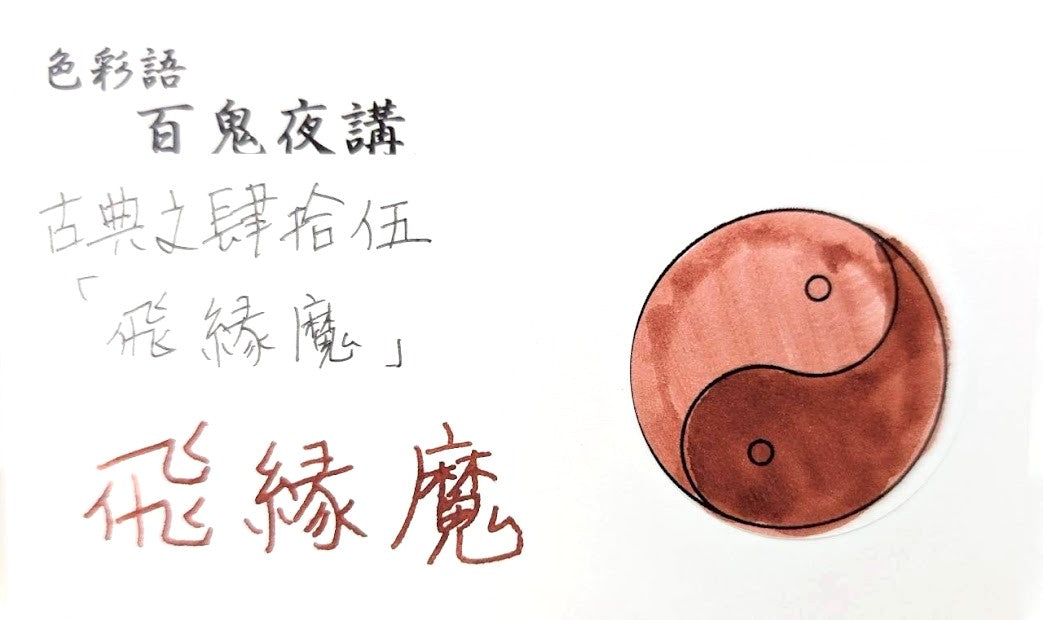 色彩語
百鬼夜講
古典文肆拾伍
「飛縁魔」
飛縁魔